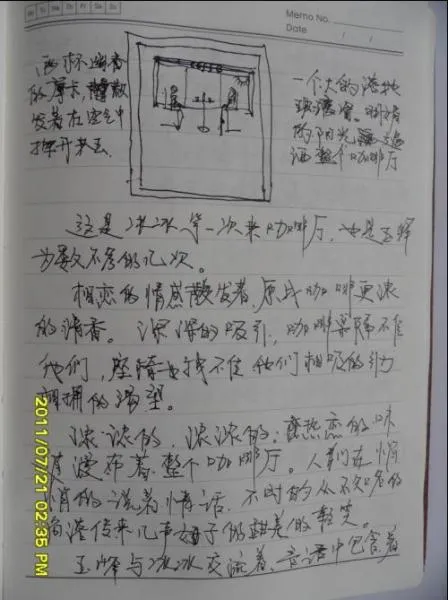 Mo Tu We Th Fr Sa Su
Memo No.
Date / /
两杯
的摩卡,散
发着在空气中
挥开来去.
一个大的落地
玻璃窗。
的阳光
洒整个咖啡厅
这是冰冰第一次来咖啡厅,也是玉峰
为数不多的几次。
相恋的情感散发着,原我咖啡更浓
的清香。深深的吸引,咖啡
他们,座椅也挡不住他们相吸的引力
相拥的渴望。
浓浓的,浓浓的;热恋的味
漫布着整个咖啡厅。人们在悄
悄的说着情话,不时的从不知名的
角落传来几声女子的甜美的轻笑。
玉峰与冰冰交流着,言语中包含着
2011/07/21 02:35 PM